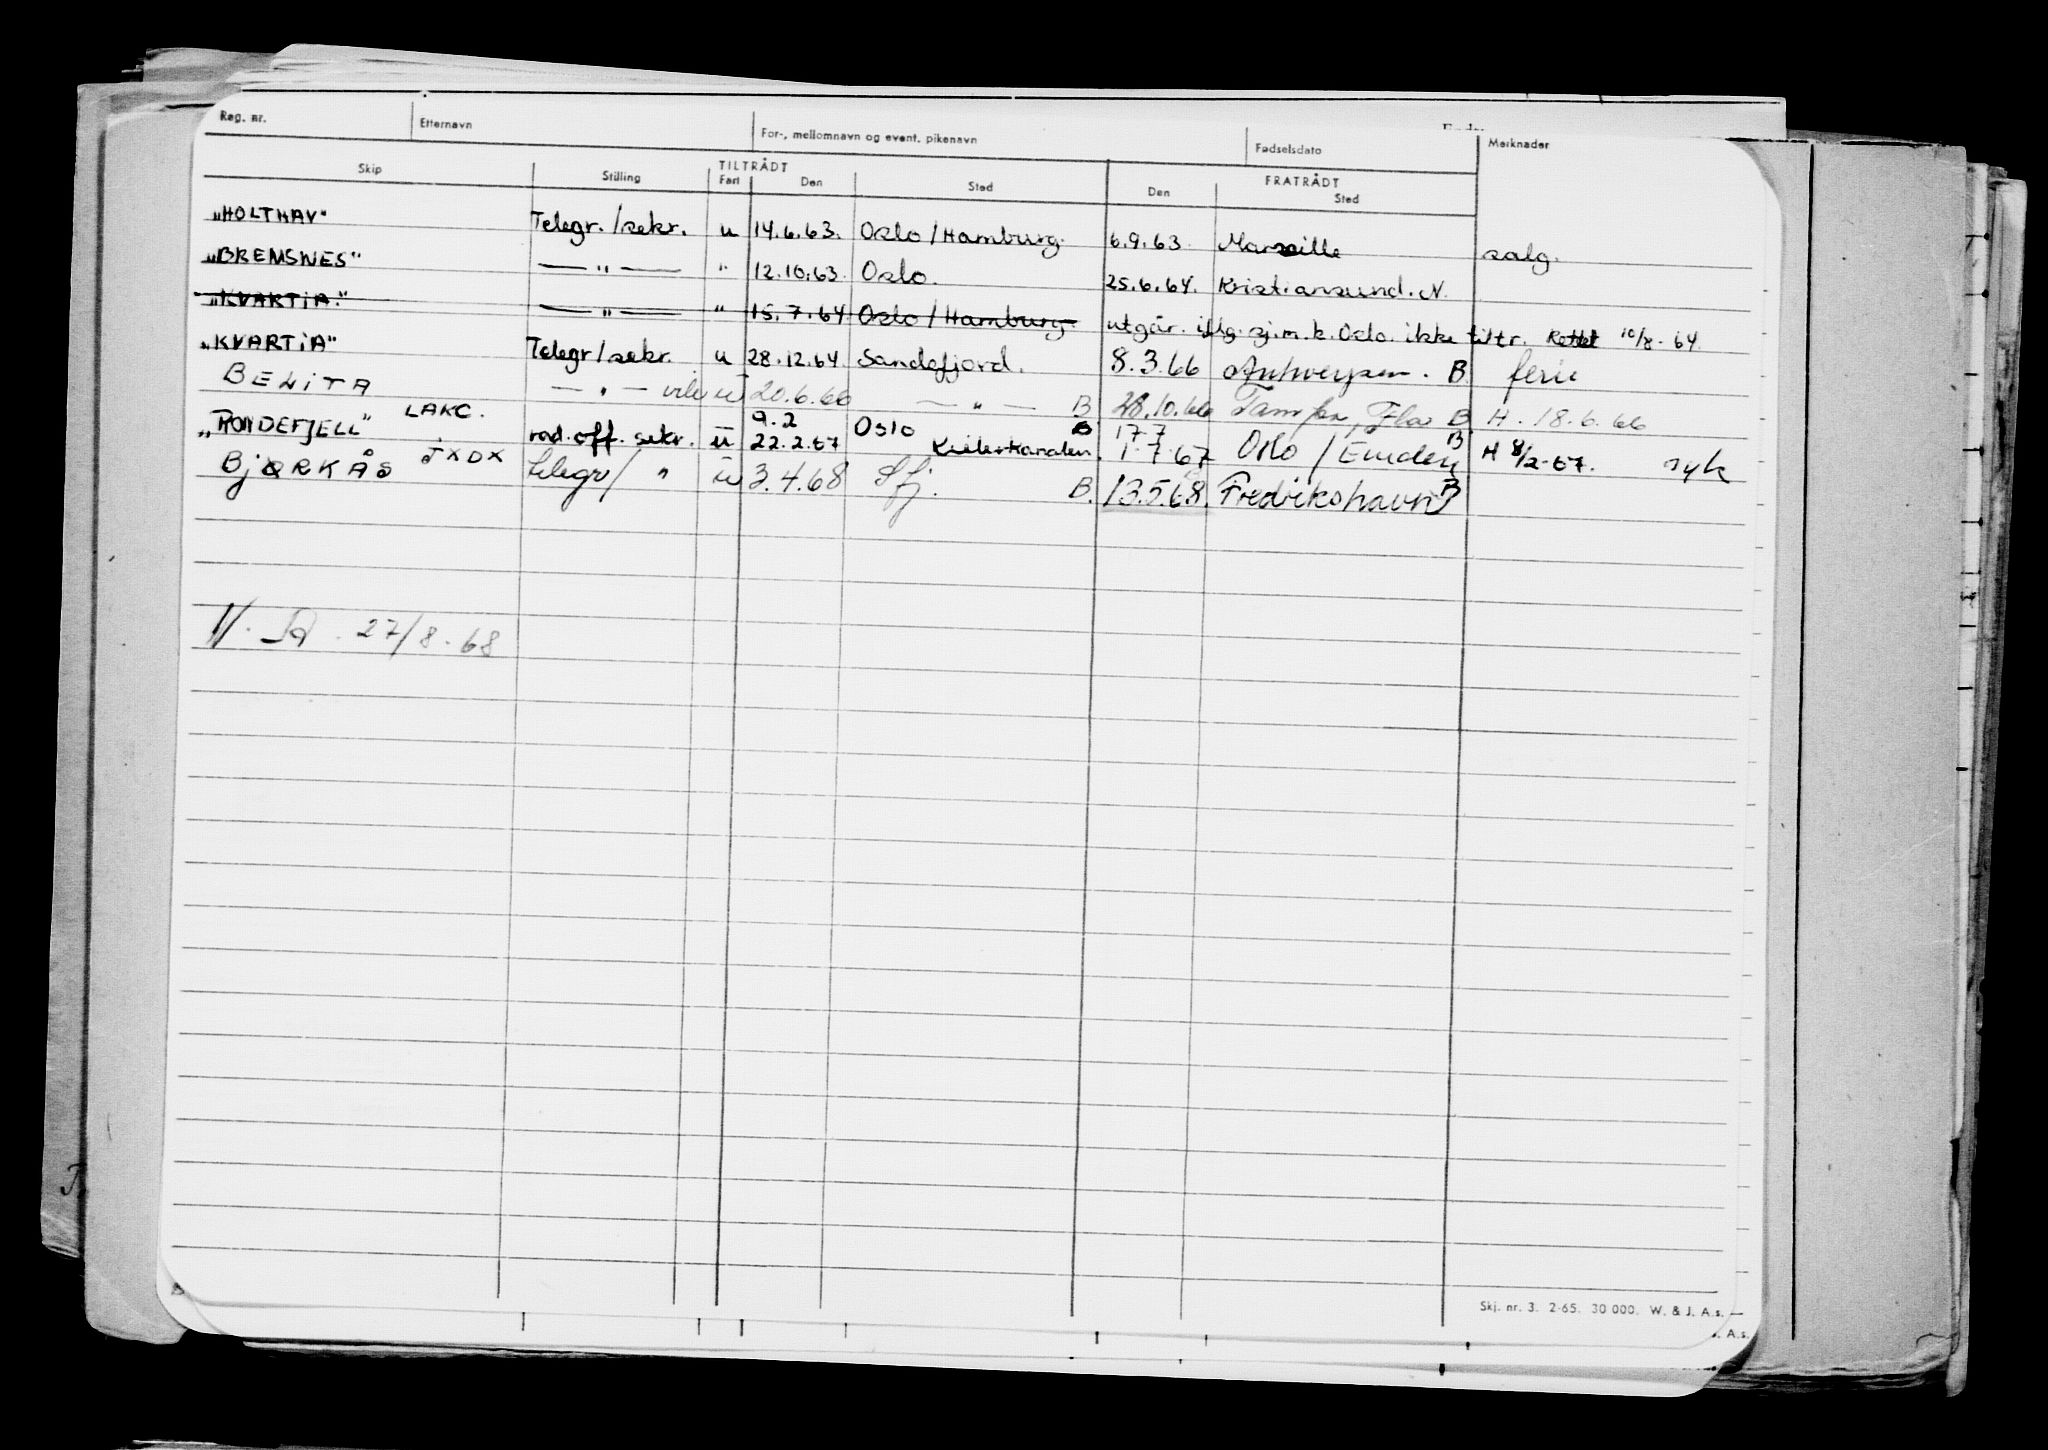 Reg. nr. Etternavn For-, mellomnavn og event. pikenavn Fødselsdato Merknader
Skip Stilling TILTRÅDT Fart Den Sted FRATRÅDT Den Sted
"HOLTHAV" Telegr./sekr. u 14.6.63. Oslo/Hamburg. 6.9.63. Marseille salg.
"BREMSNES" — " — " 12.10.63. Oslo. 25.6.64. Kristiansund. N.
"KVARTIA." — " — " 15.7.64 Oslo/Hamburg. utgår. iflg. sj.m.k. Oslo. ikke tiltr. Rettet 10/8-64.
"KVARTIA" Telegr/sekr. u 28.12.64. Sandefjord. 8.3.66 Antwerpen. B. ferie
BELITA — " — u 20.6.66 — " — B 28.10.66 Tampa, Fla B H. 18.6.66
"RONDEFJELL" LAKC. rad.off. sekr. u 9.2 Oslo B 17.7
22.2.67 Kielerkanalen. 1.7.67 Oslo/Emden B H 8/2-67. syk
BJØRKÅS JXDX telegr/ " u 3.4.68 Sfj. B. 13.5.68. Fredrikshavn B
27/8-68
Skj. nr. 3. 2-65. 30 000. W. & J. A.s.
A.s.